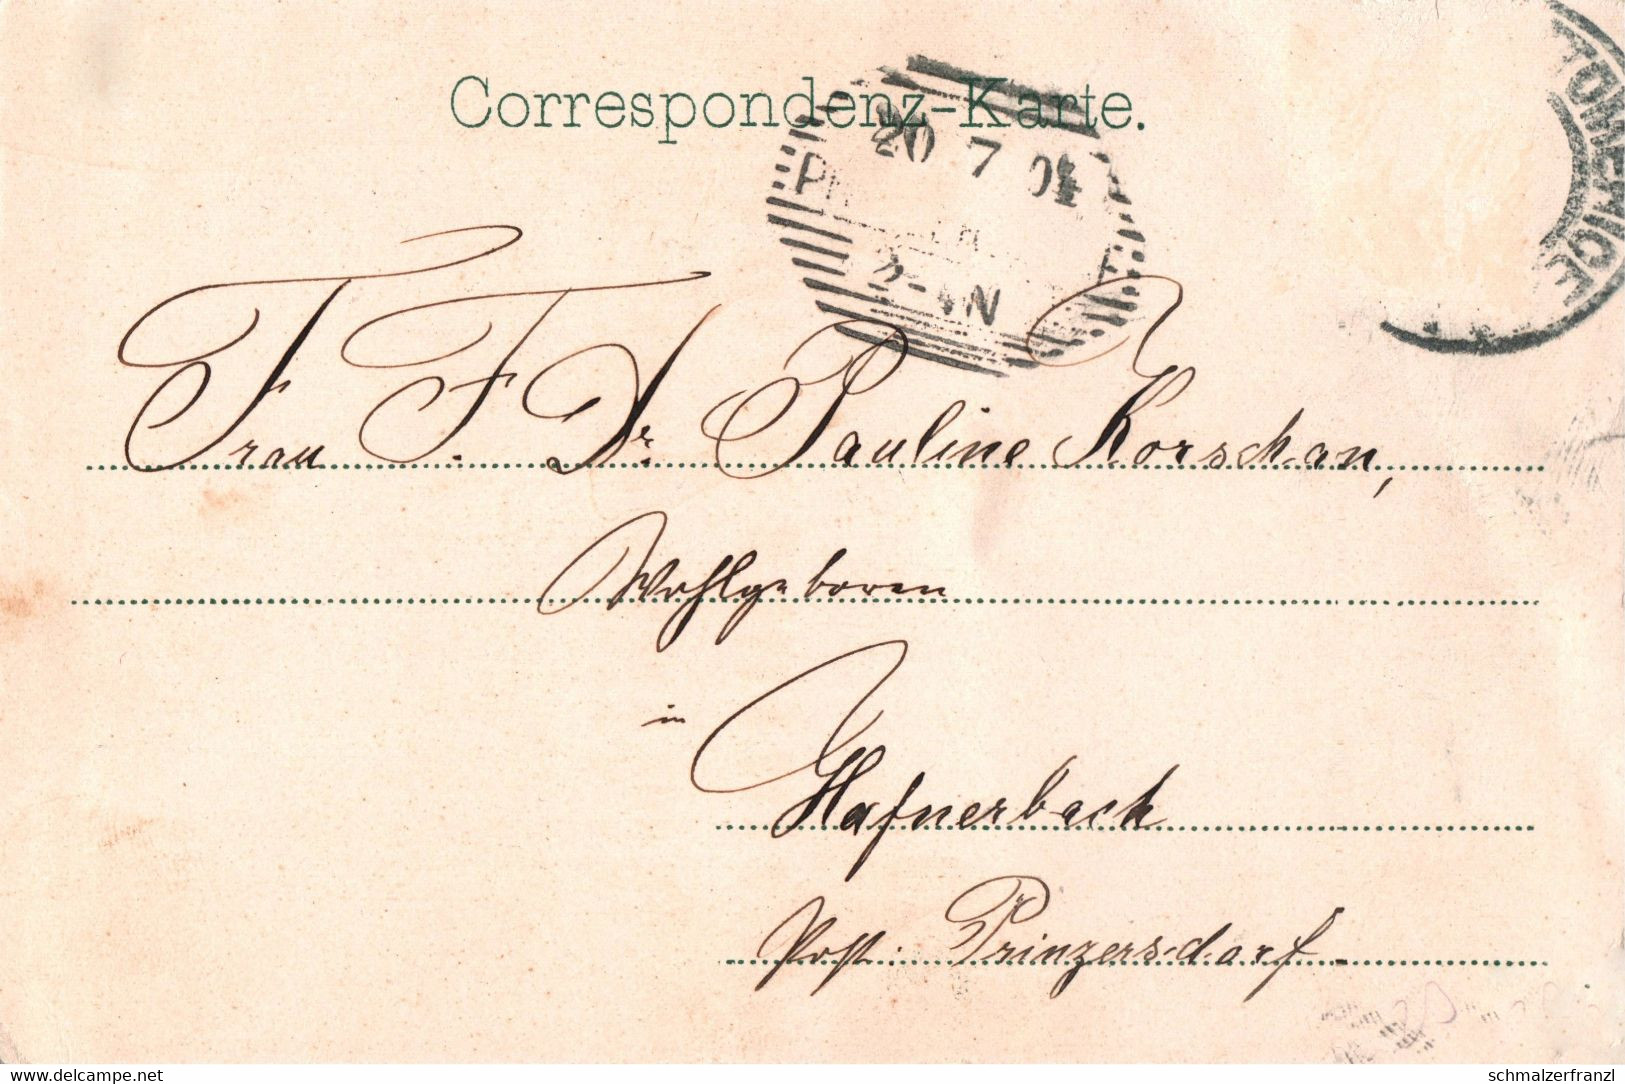 Correspondenz-Karte.
20 7 01
2-4N
Frau F. Dr. Pauline Korschan,
Wohlgeboren
in
Hafnerbach
Post: Prinzersdorf.
Delcampe.net
schmalzerfranzl